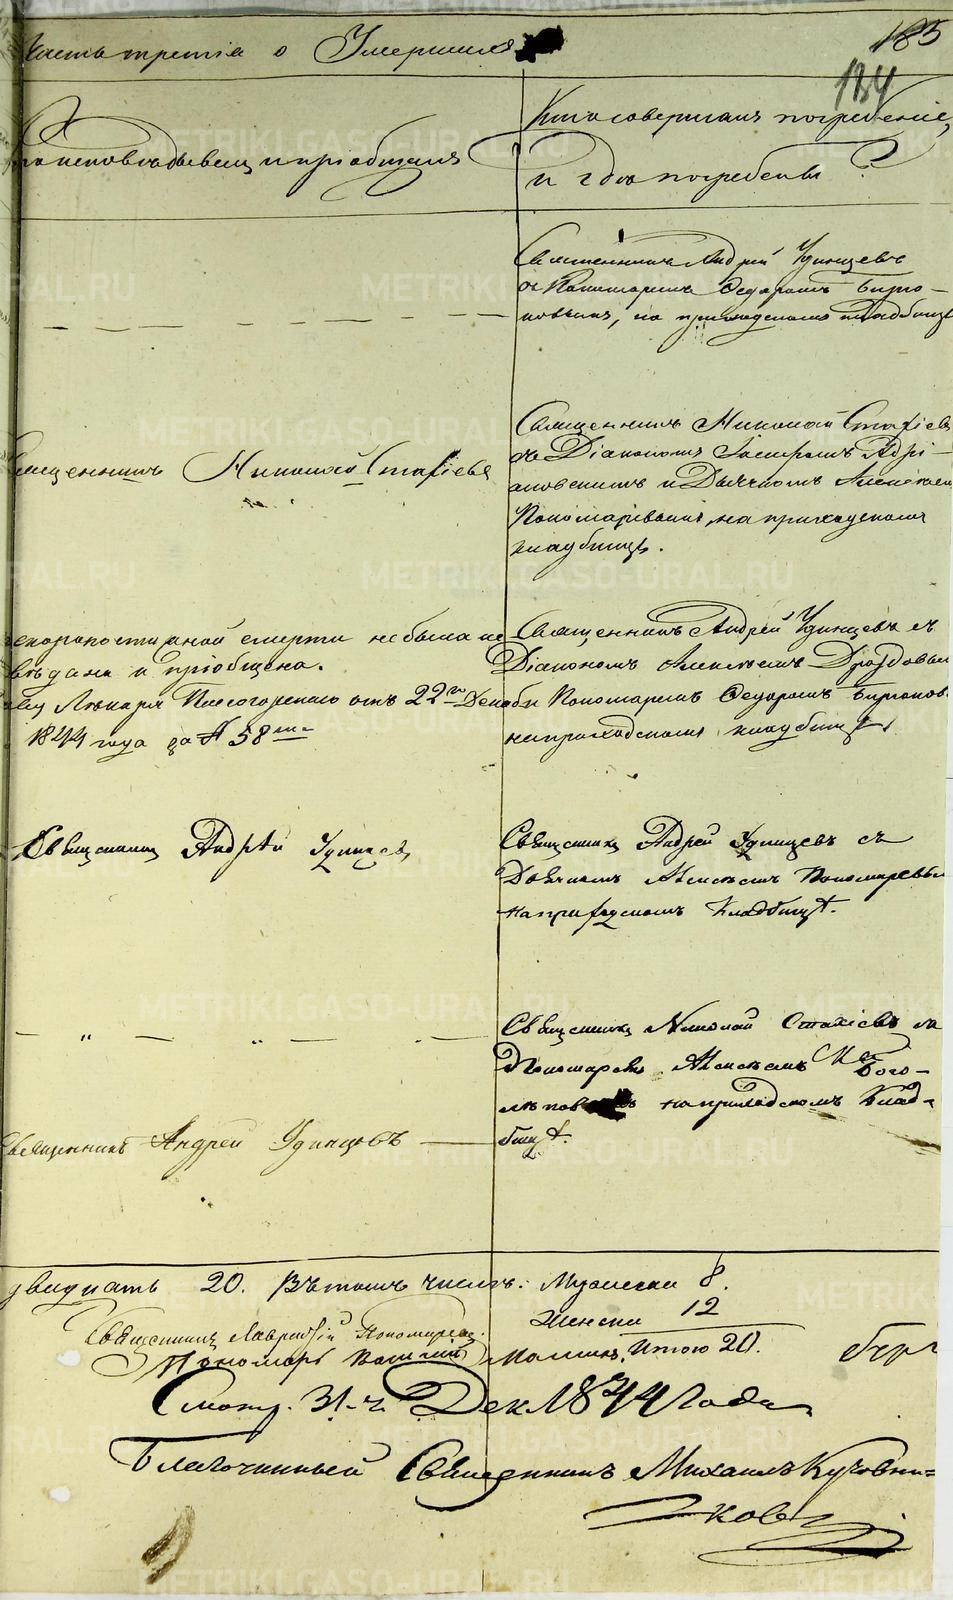 Часть третія о Умершихъ
185
184
Кто исповѣдывалъ и пріобщалъ
Кто совершалъ погребеніе,
и гдѣ погребены?
Священникъ Андрей Удинцевъ
съ Пономаремъ Ѳедоромъ Бирю-
ковымъ, на приходскомъ кладбищѣ
Священникъ Николай Стахіевъ
Священникъ Николай Стахіевъ
съ Діакономъ Адрі-
ановскимъ и Дьячкомъ Алексѣемъ
Пономаревымъ, на приходскомъ
кладбищѣ.
скоропостижной смерти не была испо-
вѣдана и пріобщена.
Лѣкаря отъ 22го Декабр
1844 года за № 58мъ
Священникъ Андрей Удинцевъ съ
Діакономъ Алексѣемъ Дроздовым
Пономаремъ Ѳедоромъ Бирюков
на приходскомъ кладбищѣ
Священникъ Андрей Удинцевъ
Священникъ Андрей Удинцевъ съ
Дьячкомъ Алексѣемъ Пономаревым
на приходскомъ кладбищѣ.
Священникъ Николай Стахіевъ съ
Пономаремъ Алексѣемъ Бого-
лѣповымъ на приходскомъ клад-
бищѣ.
Священникъ Андрей Удинцовъ
двадцать 20. Въ томъ числѣ: Мужеска 8.
Женска 12
Итого 20.
Священникъ Лаврентій Пономаревъ.
Пономарь Василій
Смотр. 31-ч. Дек. 1844 Года
Благочинный Священникъ Михаилъ Кузовни-
ковъ
METRIKI.GASO-URAL.RU